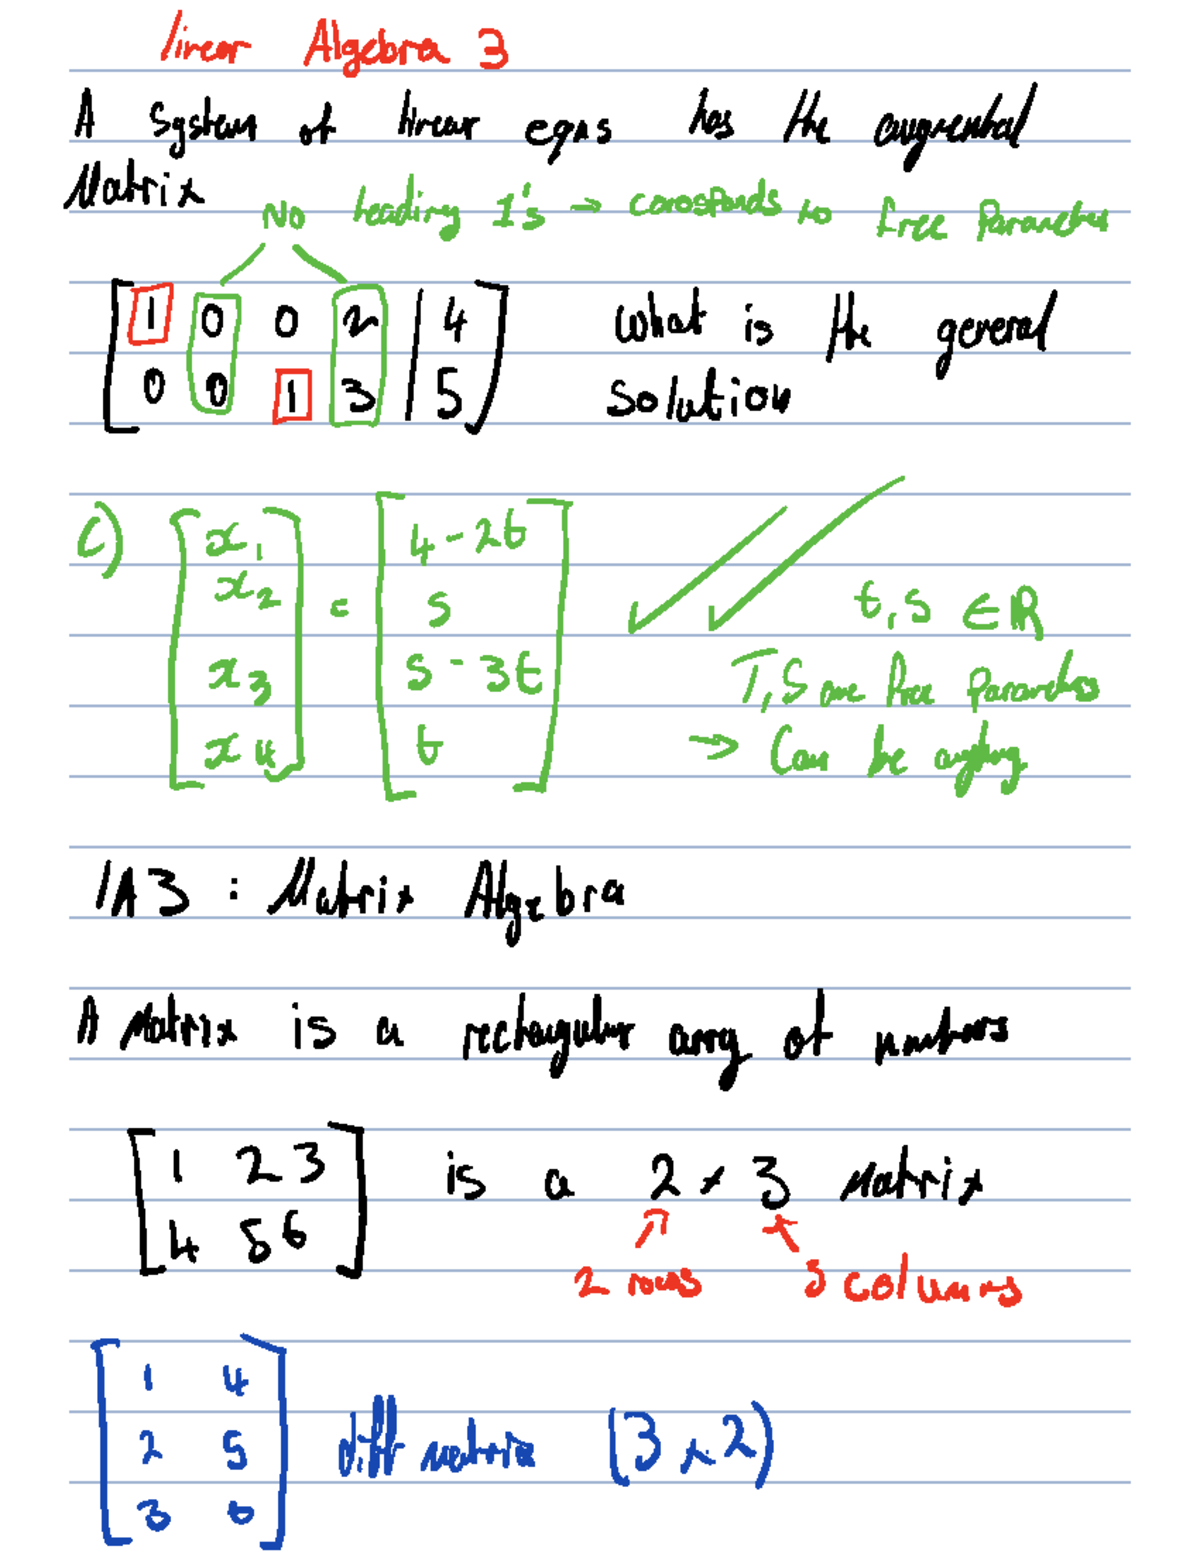 linear Algebra 3
A System of linear eqns has the augmented
Matrix
No leading 1's → corosponds to free Parameter
1 0 0 2 | 4
What is the general
0 0 1 3 | 5
Solution
c) x₁ = 4 - 2t
x₂ s
t, s ∈ ℝ
x₃ s - 3t
T, S are free Parameters
x₄ t
→ Can be anything
LA3 : Matrix Algebra
A Matrix is a rectangular array of numbers
1 2 3
4 5 6
is a 2 × 3 Matrix
2 rows 3 columns
1 4
2 5
diff matrix (3 × 2)
3 6